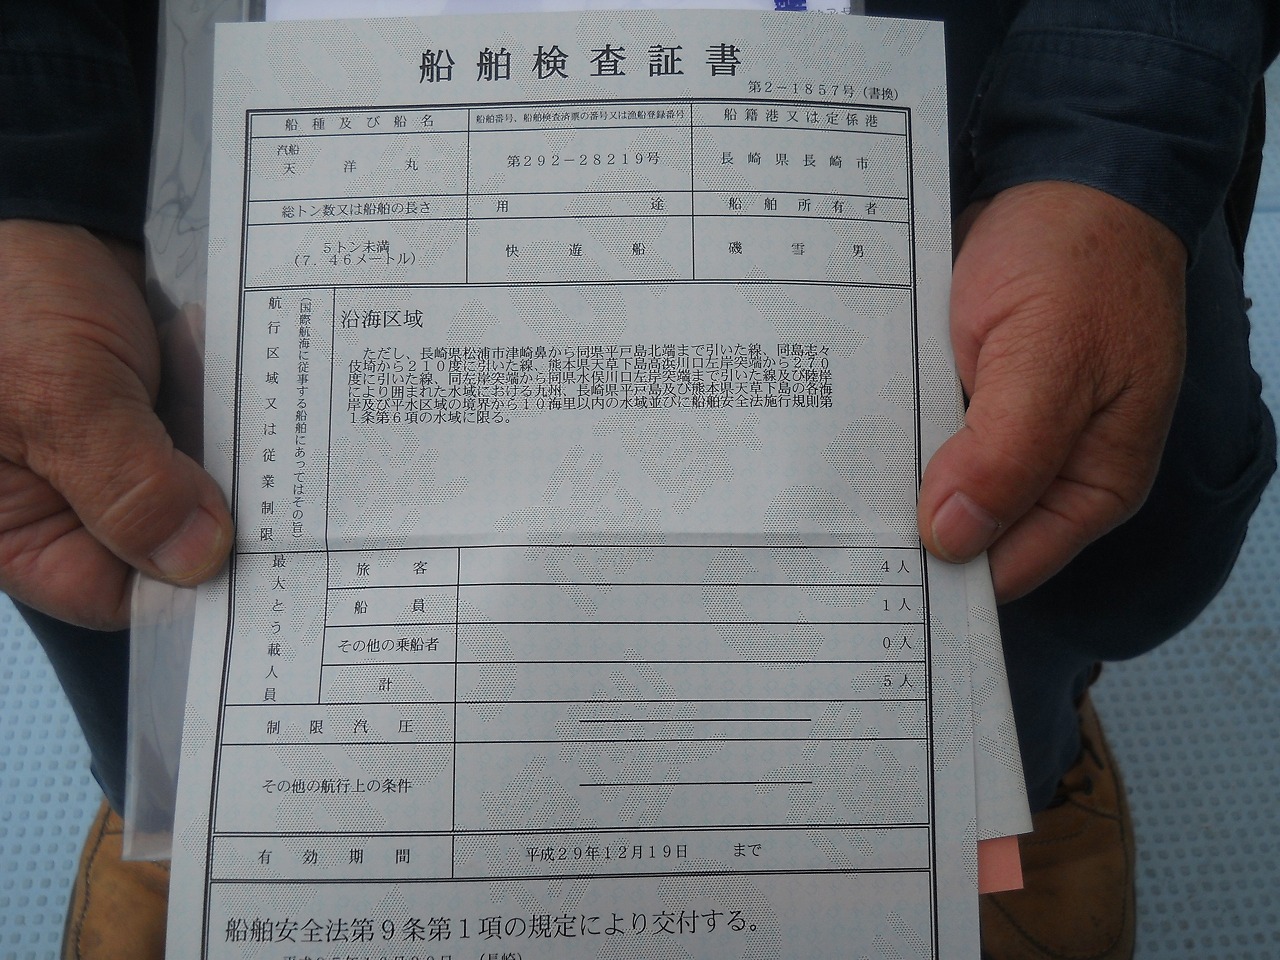 船舶検査証書
第2-1857号(書換)
船種及び船名
船舶番号、船舶検査済票の番号又は漁船登録番号
船籍港又は定係港
汽船
天洋丸
第292-28219号
長崎県長崎市
総トン数又は船舶の長さ
用途
船舶所有者
5トン未満
(7.46メートル)
快遊船
磯雪男
航行区域又は従業制限
(国際航海に従事する船舶にあってはその旨)
沿海区域
ただし、長崎県松浦市津崎鼻から同県平戸島北端まで引いた線、同島志々
伎埼から210度に引いた線、熊本県天草下島高浜川口左岸突端から270
度に引いた線、同左岸突端から同県水俣川口左岸突端まで引いた線及び陸岸
により囲まれた水域における九州、長崎県平戸島及び熊本県天草下島の各海
岸及び平水区域の境界から10海里以内の水域並びに船舶安全法施行規則第
1条第6項の水域に限る。
最大とう載人員
旅客 4人
船員 1人
その他の乗船者 0人
計 5人
制限汽圧
その他の航行上の条件
有効期間
平成29年12月19日 まで
船舶安全法第9条第1項の規定により交付する。
(長崎)